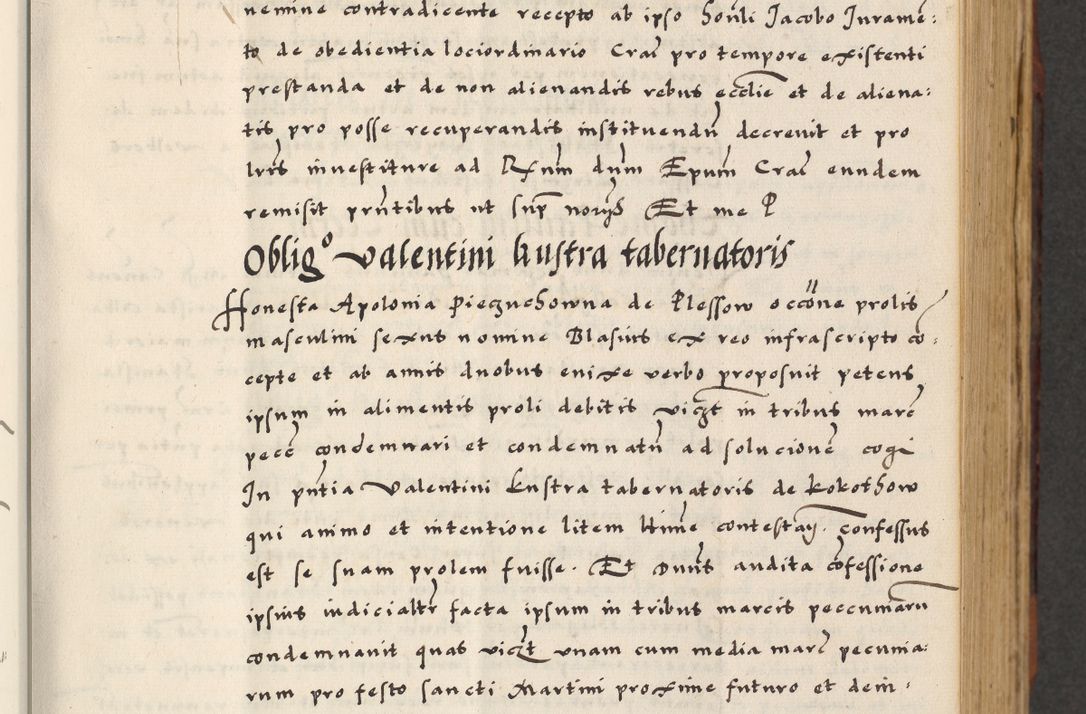 nemine contradicente recepto ab ipso honli Jacobo Jurame:
to de obedientia lociordinario Crac pro tempore existenti
prestanda et de non alienandis rebus ecclie et de aliena:
tis pro posse recuperandis instituendu decrevit et pro
lris investiture ad Rnm dnm Epum Crac eundem
remisit pntibus ut sup Et me P
Obligo Valentini kustra tabernatoris
Honesta Apolonia Pieczuchowna de Plessow occone prolis
masculini sexus nomine Blasius ex reo infrascripto co:
cepte et ab annis duobus enixe verbo proposuit petens
ipsum in alimentis proli debitis viczt in tribus marc
pecc condemnari et condemnatu ad solucione cogi
In pntia Valentini kustra tabernatoris de kokothow
qui animo et intentione litem hmoi contestan confessus
est se suam prolem fuisse. Et Dnus audita cofessione
ipsius iudicialtr facta ipsum in tribus marcis peccuniaru
condemnavit quas viczt unam cum media marc pecunia:
rum pro festo sancti Martini proxime futuro et dein: